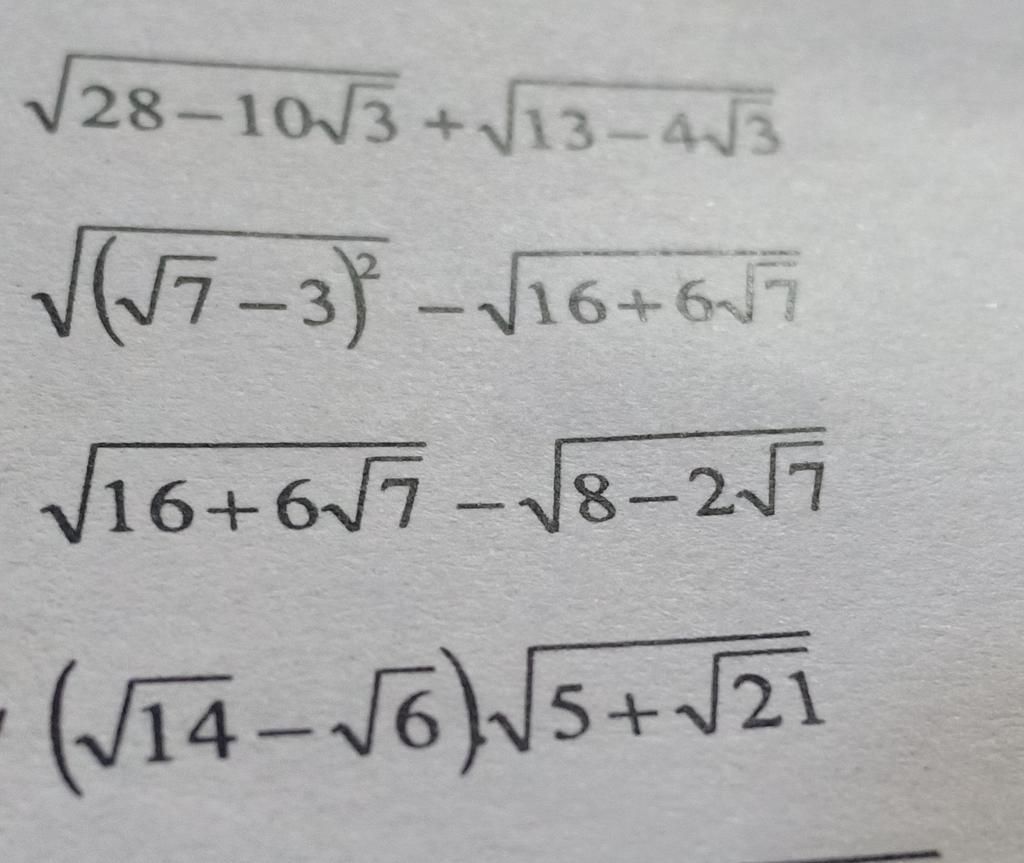 √(28−10√3) + √(13−4√3)
√((√7−3)²) − √(16+6√7)
√(16+6√7) − √(8−2√7)
(√14−√6).√(5+√21)